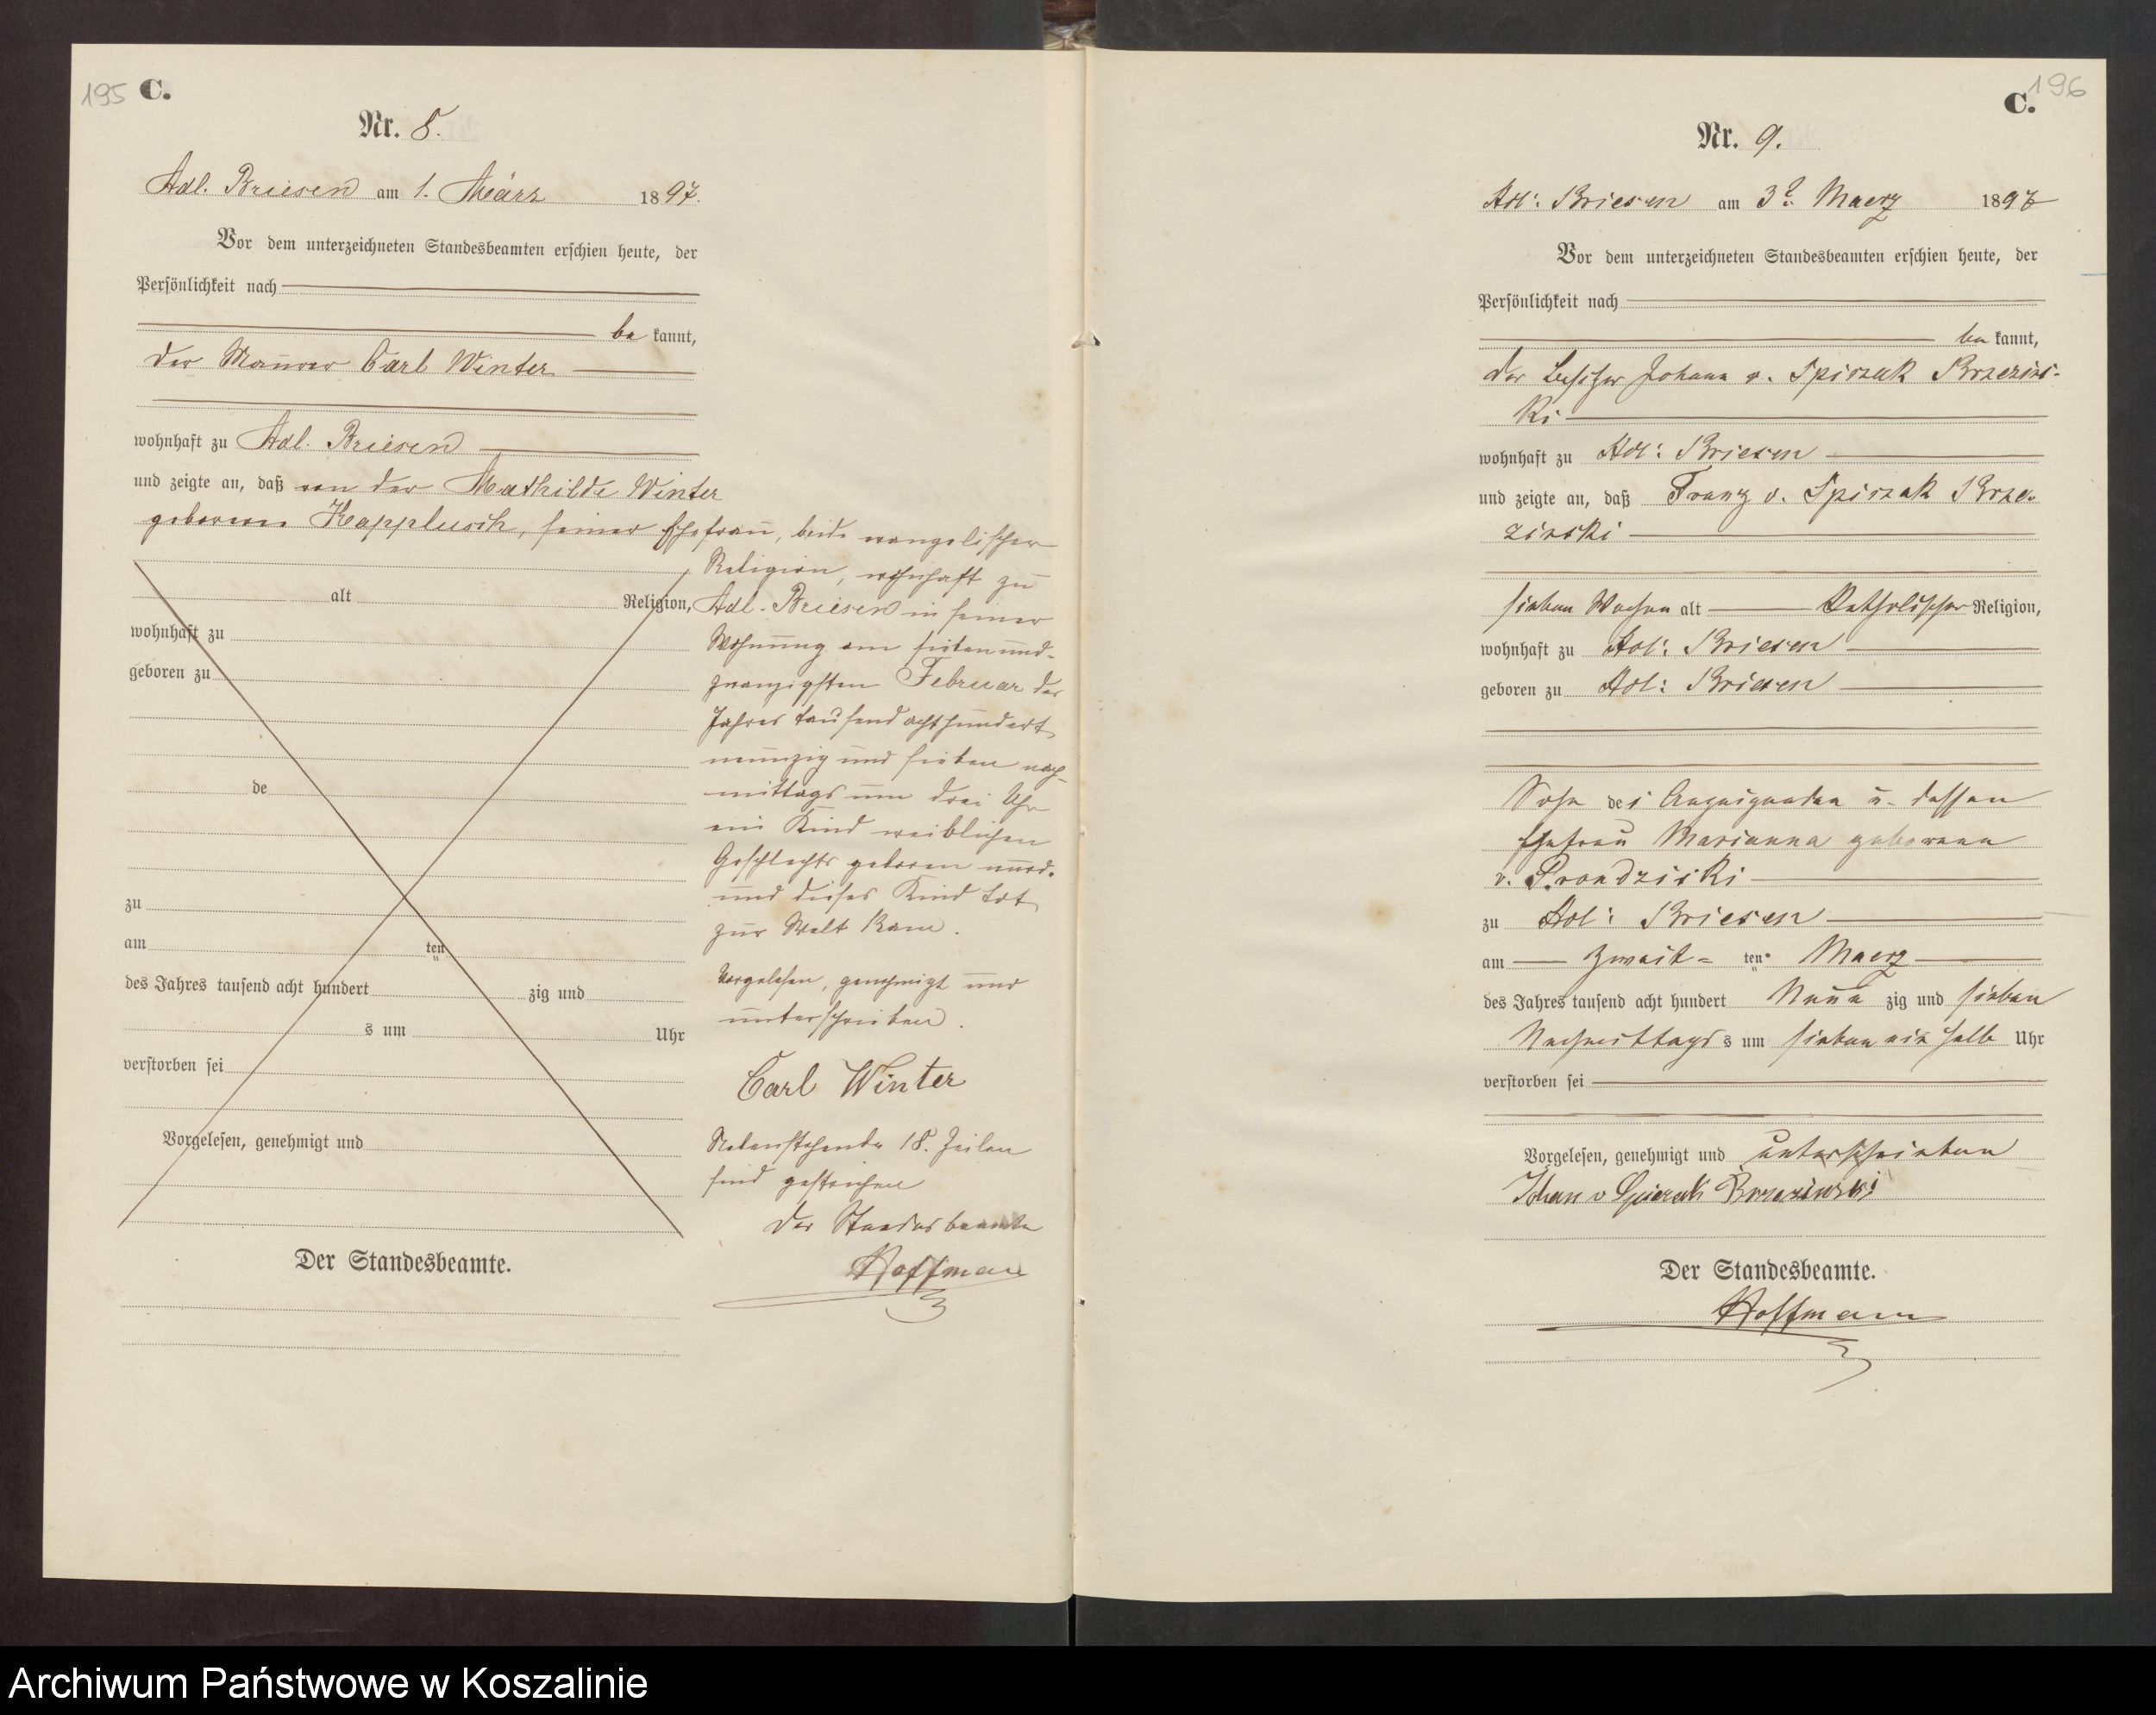 195 C.
Nr. 8.
Adl. Briesen am 1. März 1897.
Vor dem unterzeichneten Standesbeamten erschien heute, der
Persönlichkeit nach
be kannt,
der Maurer Carl Winter
wohnhaft zu Adl. Briesen
und zeigte an, daß von der Mathilde Winter
geborene Kapplusch, seiner Ehefrau, beide evangelischer
Religion, wohnhaft zu
alt Religion, Adl. Briesen in seiner
wohnhaft zu Wohnung am sieben und-
geboren zu zwanzigsten Februar des
Jahres tausend acht hundert
neunzig und sieben nach-
de mittags um drei Uhr
ein Kind weiblichen
Geschlechts geboren wurd.
zu und dieses Kind tot
am ten zur Welt kam.
des Jahres tausend acht hundert zig und Vorgelesen, genehmigt und
s um Uhr unterschrieben.
verstorben sei Carl Winter
Vorgelesen, genehmigt und Nebenstehende 18. Zeilen
sind gestrichen
Der Standesbeamte
Der Standesbeamte. Hoffmann
196
C.
Nr. 9.
Adl: Briesen am 3. Maerz 1897
Vor dem unterzeichneten Standesbeamten erschien heute, der
Persönlichkeit nach
be kannt,
der Besitzer Johann v. Spiczak Brzezins-
ki
wohnhaft zu Adl: Briesen
und zeigte an, daß Franz v. Spiczak Brze-
zinski
sieben Wochen alt Katholischer Religion,
wohnhaft zu Adl: Briesen
geboren zu Adl: Briesen
Sohn des Anzeigenden u. dessen
Ehefrau Marianna geborene
v. Prondzinski
zu Adl: Briesen
am zweit- ten Maerz
des Jahres tausend acht hundert Neun zig und sieben
Nachmittags s um sieben ein halb Uhr
verstorben sei
Vorgelesen, genehmigt und unterschrieben
Johan v Spiczak Brzezinski
Der Standesbeamte.
Hoffmann
Archiwum Państwowe w Koszalinie